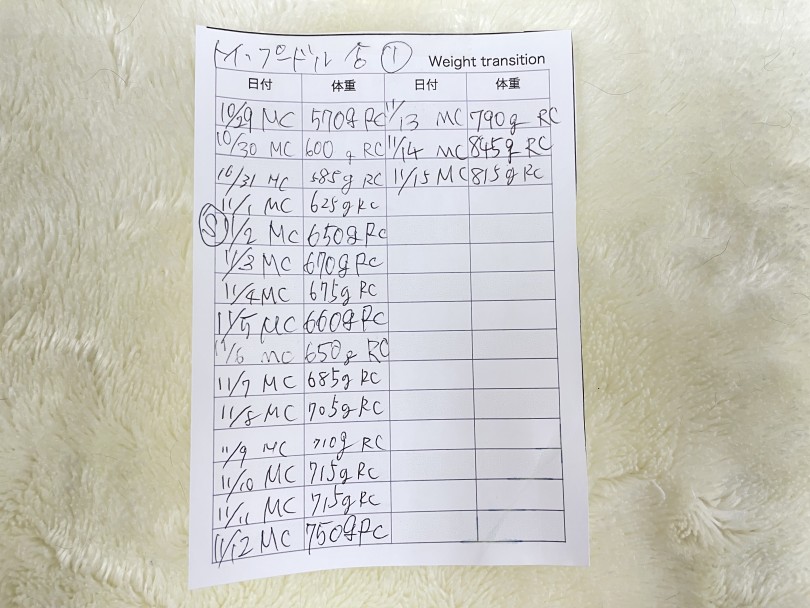 トイ・プードル ①
Weight transition
日付 体重 日付 体重
10/29 MC 570g RC 11/13 MC 790g RC
10/30 MC 600g RC 11/14 MC 845g RC
10/31 MC 585g RC 11/15 MC 815g RC
11/1 MC 625g RC
Ⓢ 11/2 MC 650g RC
11/3 MC 670g RC
11/4 MC 675g RC
11/5 MC 660g RC
11/6 MC 650g RC
11/7 MC 685g RC
11/8 MC 705g RC
11/9 MC 710g RC
11/10 MC 715g RC
11/11 MC 715g RC
11/12 MC 750g RC